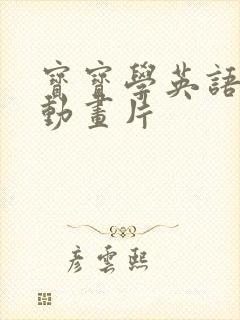 寶寶學英語
動畫片
彥雲熙